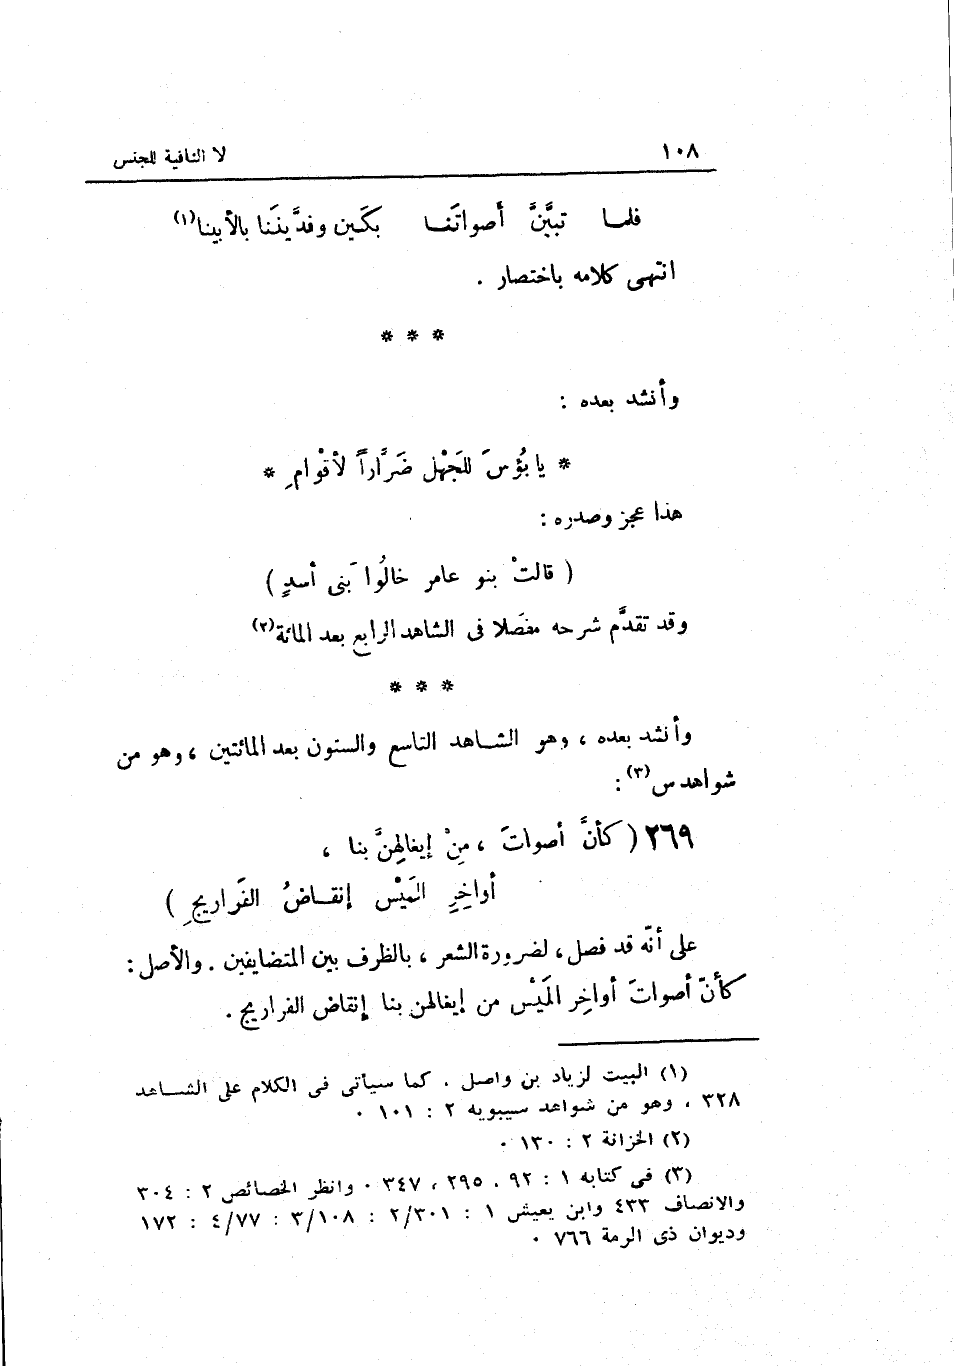 ١٠٨ لا النافية للجنس
فلما تبيَّنَّ أصواتَنا بكَين وفدَّينَنا بالأبينا(١)
انتهى كلامه باختصار .
* * *
وأنشد بعده :
* يا بُؤسَ للجَهْل ضَرَّاراً لأقْوامِ *
هذا عجز وصدره :
( قالتْ بنو عامر خالُوا بَنى أسدٍ )
وقد تقدَّم شرحه مفصَلا فى الشاهد الرابع بعد المائة(٢)
* * *
وأنشد بعده ، وهو الشاهد التاسع والستون بعد المائتين ، وهو من
شواهد س(٣) :
٢٦٩ ( كأنَّ أصواتَ ، مِنْ إيغالِهنَّ بنا ،
أواخِرِ المَيْس إنقاضُ الفَراريجِ )
على أنّه قد فصل ، لضرورة الشعر ، بالظرف بين المتضايفين . والأصل :
كأنّ أصواتَ أواخِر المَيْس من إيغالهن بنا إنقاض الفراريج .
(١) البيت لزياد بن واصل . كما سيأتى فى الكلام على الشاهد
٣٢٨ ، وهو من شواهد سيبويه ٢ : ١٠١ .
(٢) الخزانة ٢ : ١٣٠ .
(٣) فى كتابه ١ : ٩٢ . ٢٩٥ ، ٣٤٧ . وانظر الخصائص ٢ : ٣٠٤
والانصاف ٤٣٣ وابن يعيش ١ : ٢/٣٠١ : ٣/١٠٨ : ٤/٧٧ : ١٧٢
وديوان ذى الرمة ٧٦٦ .